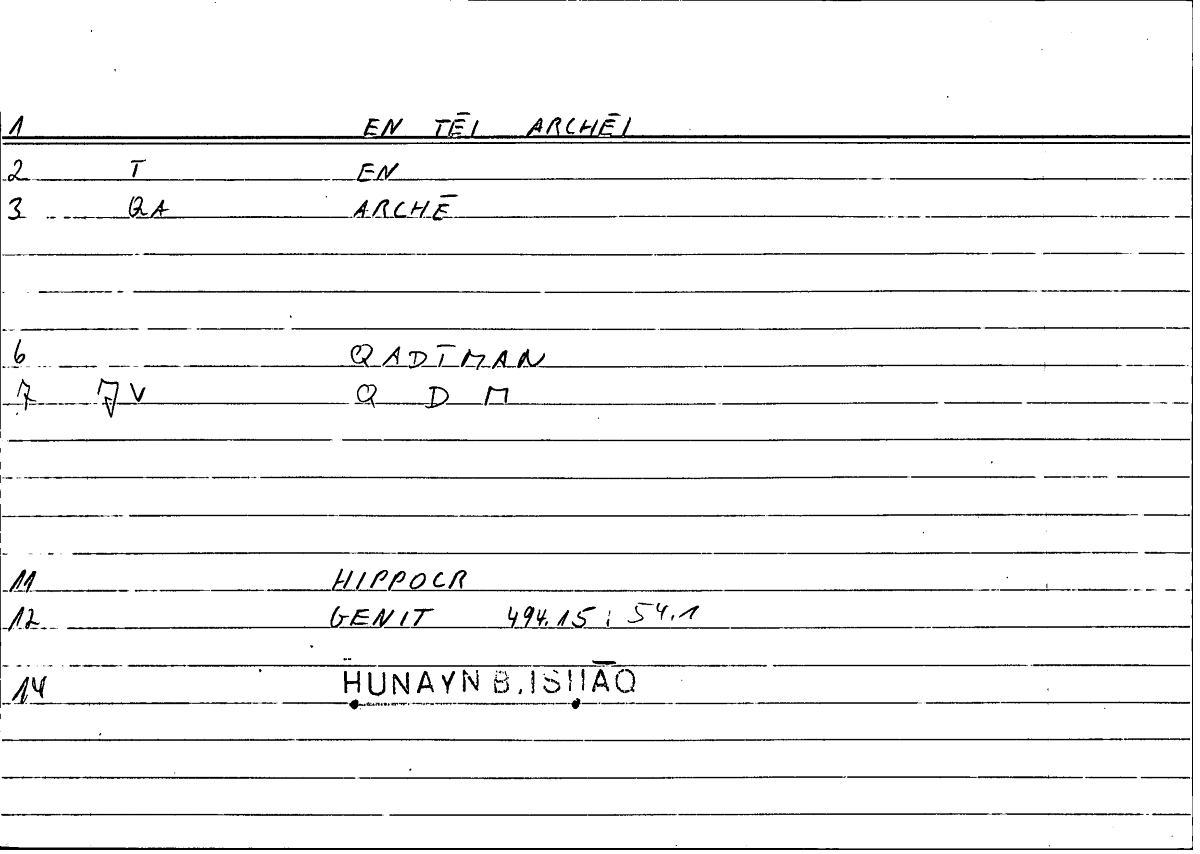 1 EN TĒI ARCHĒI
2 T EN
3 QA ARCHĒ
6 QADĪMAN
7 7V Q D M
11 HIPPOCR
12 GENIT 494.15 ; 54.1
14 ḤUNAYN B. ISḤĀQ